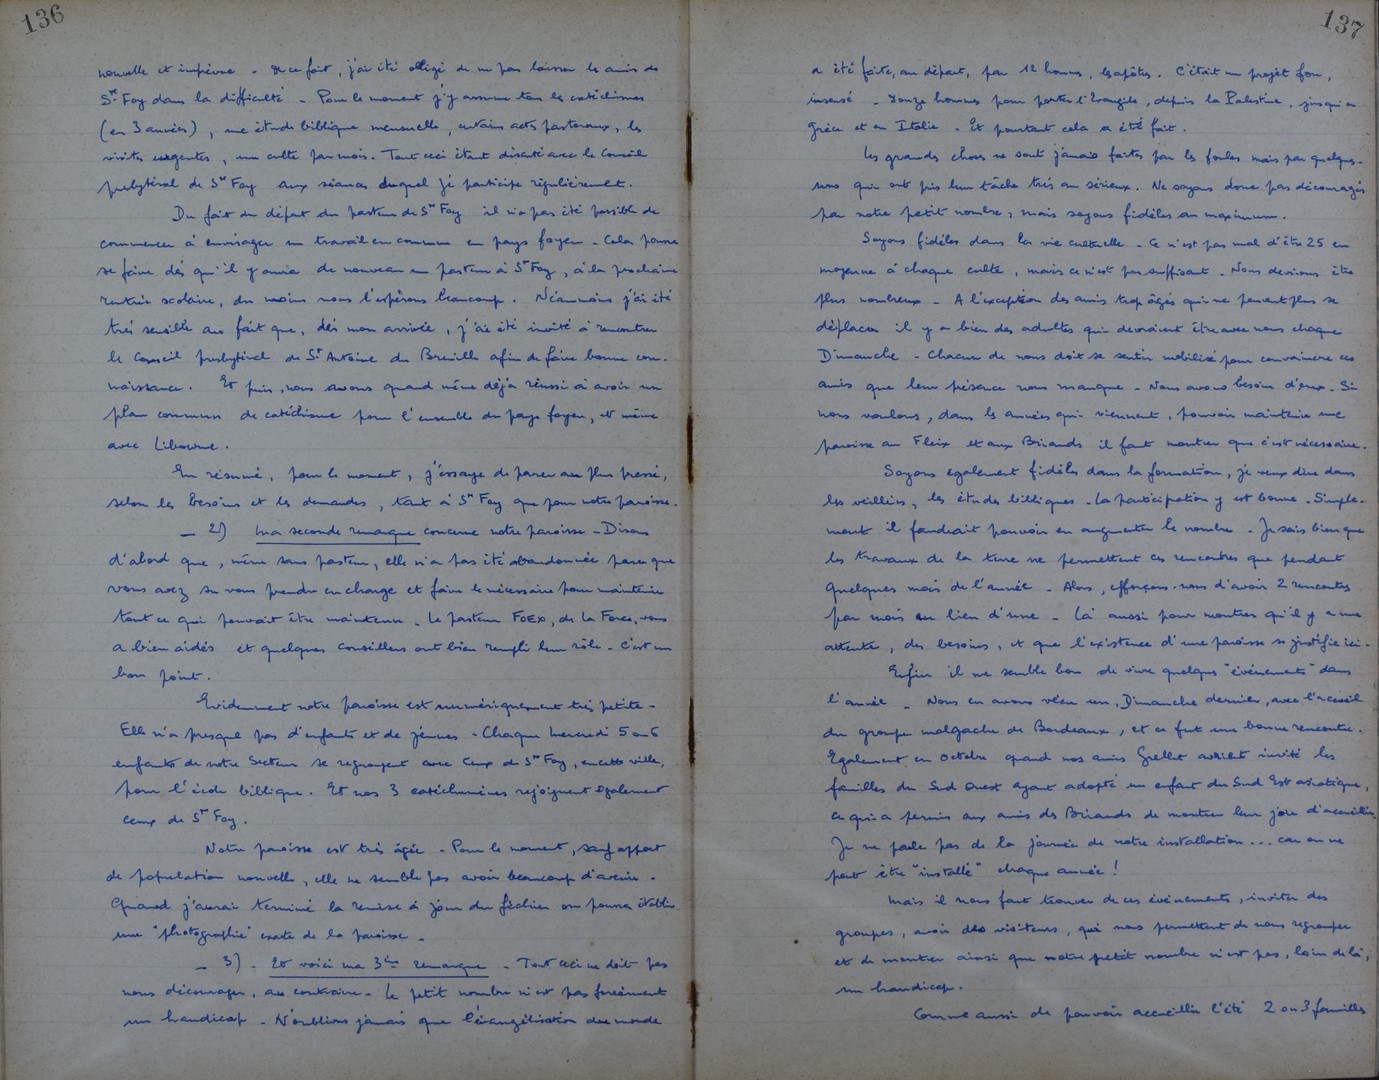 136
nouvelle et imprévue - De ce fait, j'ai été obligé de ne pas laisser les amis de
Ste Foy dans la difficulté - Pour le moment j'y assume tous les catéchismes
(en 3 années), une étude biblique mensuelle, certains actes pastoraux, les
visites urgentes, un culte par mois. Tout ceci étant discuté avec le Conseil
presbytéral de Ste Foy aux séances duquel je participe régulièrement.
Du fait du départ du pasteur de Ste Foy il n'a pas été possible de
commencer à envisager un travail en commun en pays foyen - Cela pourra
se faire dès qu'il y aura de nouveau un pasteur à Ste Foy, à la prochaine
rentrée scolaire, du moins nous l'espérons beaucoup. Néanmoins j'ai été
très sensible au fait que, dès mon arrivée, j'ai été invité à rencontrer
le Conseil presbytéral de St Antoine du Breuilh afin de faire bonne con-
naissance. Et puis, nous avons quand même déjà réussi à avoir un
plan commun de catéchisme pour l'ensemble du pays foyen, et même
avec Libourne.
En résumé, pour le moment, j'essaye de parer au plus pressé,
selon les besoins et les demandes, tant à Ste Foy que pour notre paroisse.
- 2) Ma seconde remarque concerne notre paroisse - Disons
d'abord que, même sans pasteur, elle n'a pas été abandonnée parce que
vous avez su vous prendre en charge et faire le nécessaire pour maintenir
tout ce qui pouvait être maintenu. Le pasteur FOEX, de La Force, vous
a bien aidés et quelques conseillers ont bien rempli leur rôle - C'est un
bon point.
Evidemment notre paroisse est numériquement très petite -
Elle n'a presque pas d'enfants et de jeunes - Chaque Mercredi 5 ou 6
enfants de notre Secteur se regroupent avec ceux de Ste Foy, en cette ville,
pour l'école biblique. Et nos 3 catéchumènes rejoignent également
ceux de Ste Foy.
Notre paroisse est très âgée - Pour le moment, sauf apport
de population nouvelle, elle ne semble pas avoir beaucoup d'avenir -
Quand j'aurai terminé la remise à jour du fichier on pourra établir
une "photographie" exacte de la paroisse -
- 3) - Et voici ma 3ème remarque - Tout ceci ne doit pas
nous décourager, au contraire - Le petit nombre n'est pas forcément
un handicap - N'oublions jamais que l'évangélisation du monde
137
a été faite, au départ, par 12 hommes, les apôtres. C'était un projet fou,
insensé - Douze hommes pour porter l'Evangile, depuis la Palestine, jusqu'en
Grèce et en Italie. Et pourtant cela a été fait.
Les grandes choses ne sont jamais faites par les foules mais par quelques-
uns qui ont pris leur tâche très au sérieux. Ne soyons donc pas découragés
par notre petit nombre, mais soyons fidèles au maximum.
Soyons fidèles dans la vie cultuelle - Ce n'est pas mal d'être 25 en
moyenne à chaque culte, mais ce n'est pas suffisant. Nous devrions être
plus nombreux - A l'exception des amis trop âgés qui ne peuvent plus se
déplacer il y a bien des adultes qui devraient être avec nous chaque
Dimanche - Chacun de nous doit se sentir mobilisé pour convaincre ces
amis que leur présence nous manque - Nous avons besoin d'eux. Si
nous voulons, dans les années qui viennent, pouvoir maintenir une
paroisse au Fleix et aux Briands il faut montrer que c'est nécessaire.
Soyons également fidèles dans la formation, je veux dire dans
les veillées, les études bibliques - La participation y est bonne - Simple-
ment il faudrait pouvoir en augmenter le nombre - Je sais bien que
les travaux de la terre ne permettent ces rencontres que pendant
quelques mois de l'année - Alors, efforçons-nous d'avoir 2 rencontres
par mois au lieu d'une - Là aussi pour montrer qu'il y a une
attente, des besoins, et que l'existence d'une paroisse se justifie ici -
Enfin il me semble bon de vivre quelques "événements" dans
l'année - Nous en avons vécu un, Dimanche dernier, avec l'accueil
du groupe malgache de Bordeaux, et ce fut une bonne rencontre.
Egalement en Octobre quand nos amis Grellet avaient invité les
familles du Sud Ouest ayant adopté un enfant du Sud Est asiatique,
ce qui a permis aux amis des Briands de montrer leur joie d'accueillir.
Je ne parle pas de la journée de notre installation... car on ne
peut être "installé" chaque année !
Mais il nous faut trouver de ces événements, inviter des
groupes, avoir des visiteurs, qui nous permettent de nous regrouper
et de montrer ainsi que notre petit nombre n'est pas, loin de là,
un handicap.
Comme aussi de pouvoir accueillir l'été 2 ou 3 familles